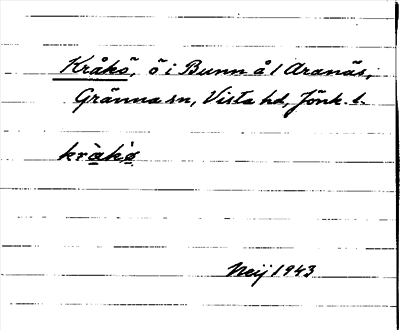 Kråkö, ö i Bunn å l Aranäs,
Gränna sn, Vista hd, Jönk. l.
kràkø
Neij 1943